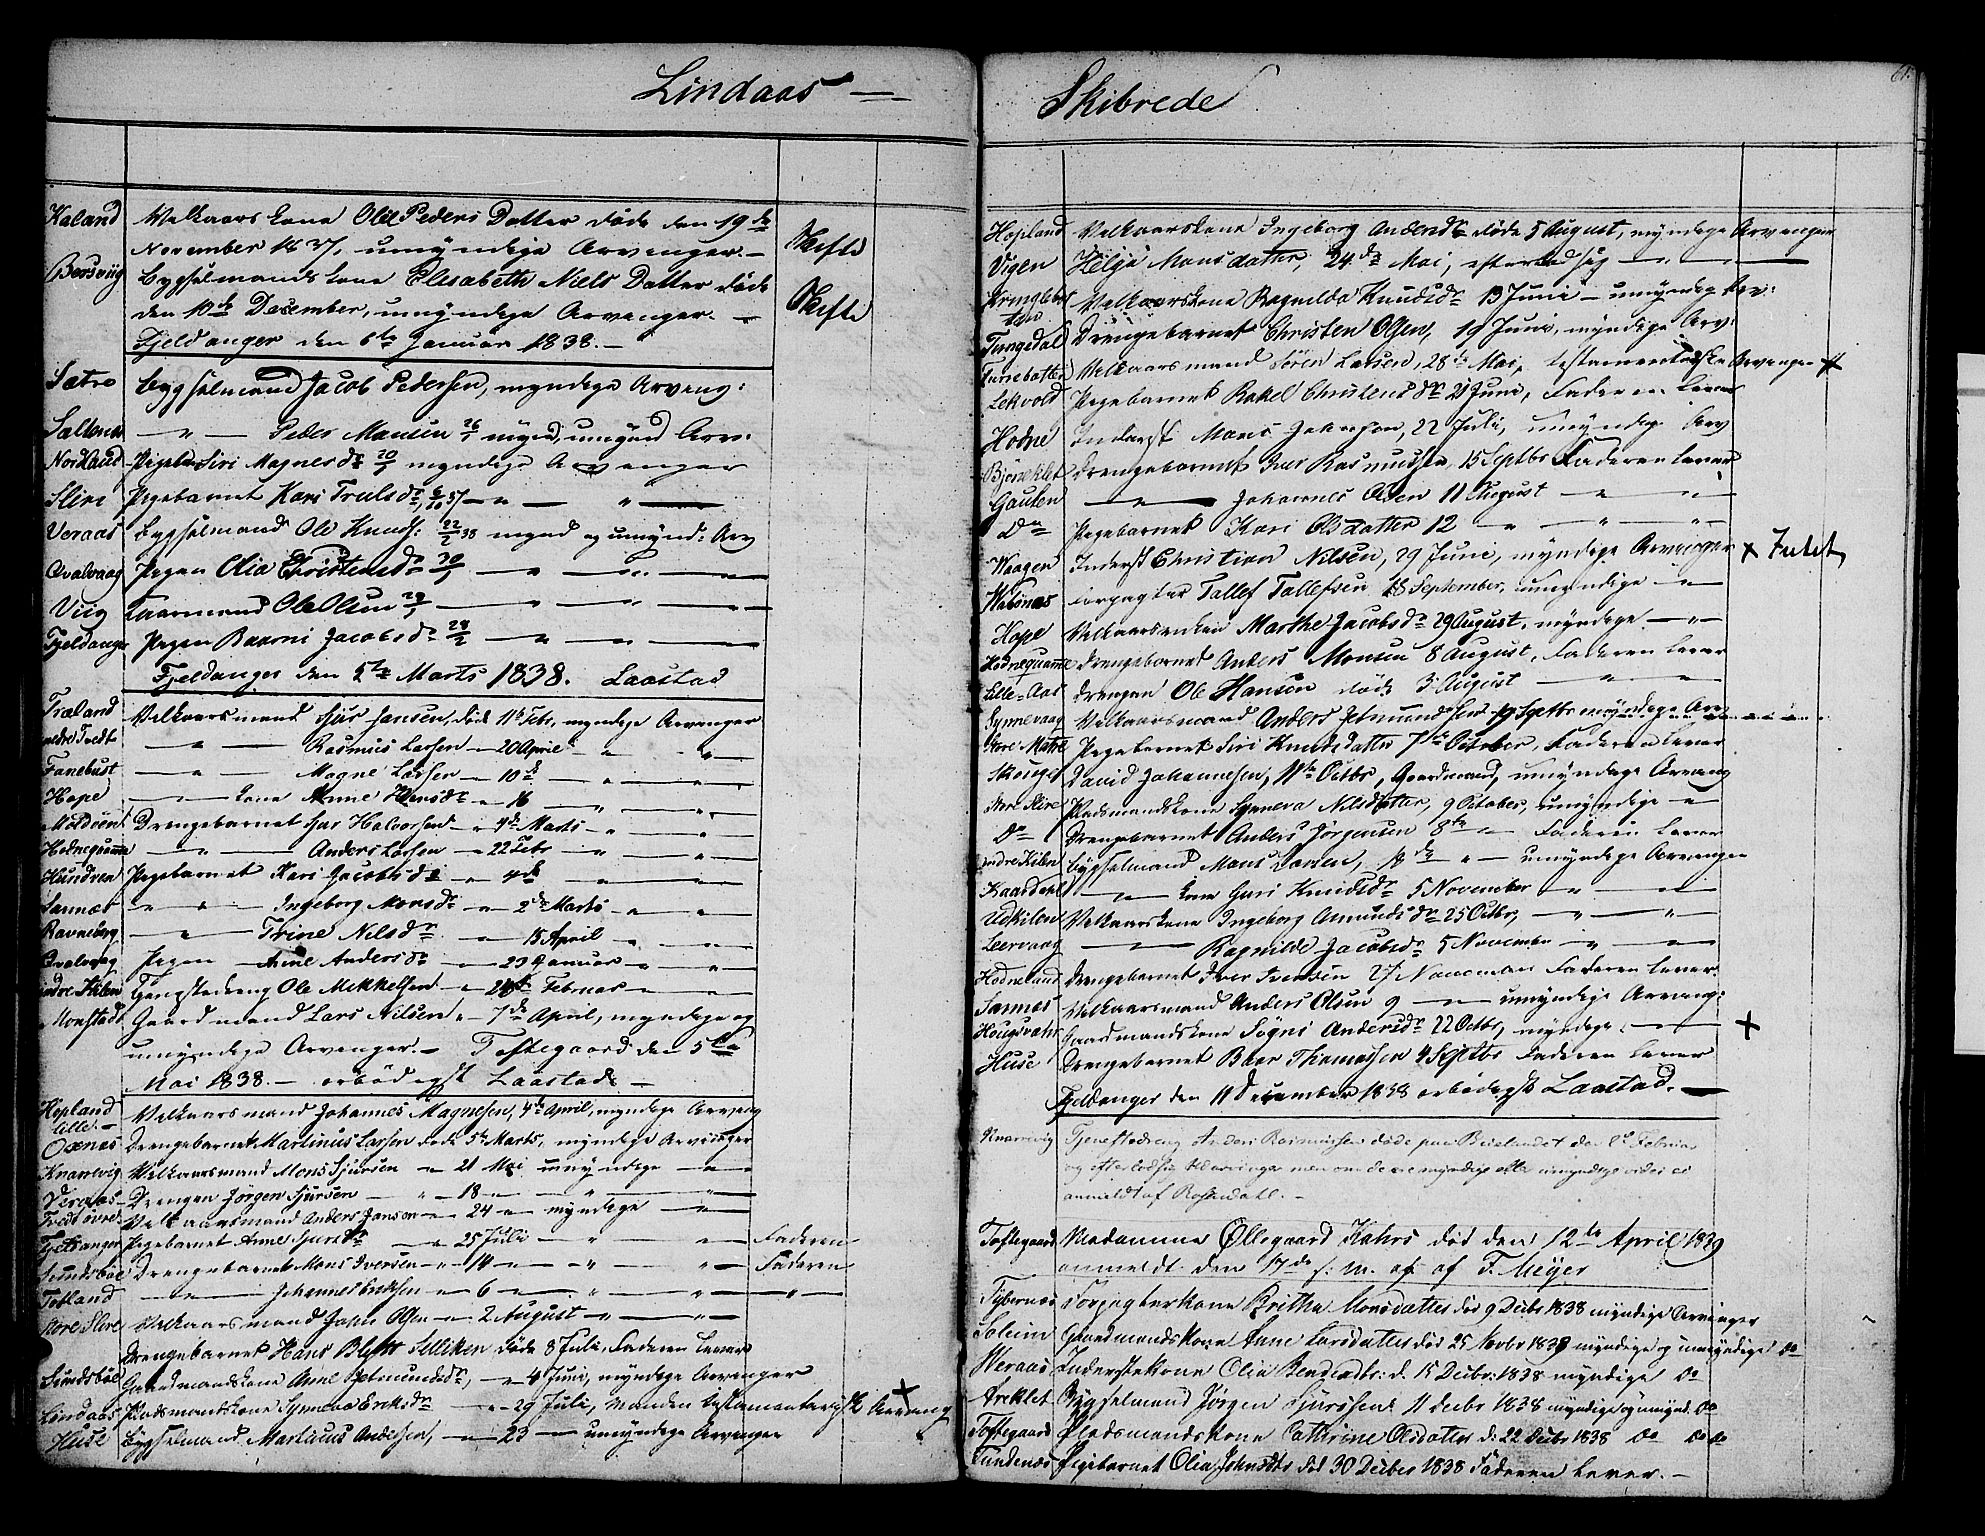 Lindaas — Skibrede
61.
Kaland Velkaars kone Olil Peders Datter døde den 19de
November 1837, umyndige Arvenger. — Skifte
Bersviig Bygselmands kone Elisabeth Niels Datter døde
den 10de December, umyndige Arvenger. — Skifte
Fjeldanger den 6te Januar 1838. —
Sætre Bygselmand Jacob Pedersen, myndige Arveng:
— " — Peder Monsen 26/1 mynd, umynd Arv:
Nordland Pigen Siri Magnesdr 20/1 myndige Arvenger
Slire Pigebarnet Kari Trulsdr 6/10 37 — " — " —
Veraas Bygselmand Ole Knuds: 22/2 38 mynd og umynd: Arv
Qvalvaag Pigen Olia Christensdr 30/1 — " — " —
Viig Ole Olsen 29/1 — " — " —
Fjeldanger Pigen Baarni Jacobsdr 28/2 — " — " —
Fjeldanger den 5te Marts 1838. Laastad
Træland Velkaarsmand Sjur Jansen, døde 11te Febr, myndige Arvenger
— " — Rasmus Larsen — 20 April " — " —
Fanebust — " — Magne Larsen — 10de — " — " —
Hope — " — kone Anne Hansdr — 16 — " — " —
Moldsund Drengebarnet Sjur Halvorsen — 4de Marts — " — " —
Hodnequamme — " — Anders Larsen — 22 Febr " — " —
Hundven Pigebarnet Kari Jacobsdr — 4de — " — " —
Sannæs — " — Ingeborg Monsdr — 2de Marts — " — " —
Ravneberg — " — Trine Nilsdr — 15 April — " — " —
Qvalvaag Pigen — Anne Andersdr — 23 Januar — " — " —
indre Kilen Tjenestedreng Ole Mikkelsen — 24 Februar — " — " —
Monstad Gaardmand Lars Nilsen — 7de April, myndige og
umyndige Arvenger. — Toftegaard den 5te
Mai 1838. — ærbødigst Laastad —
Hopland lille — Velkaarsmand Johannes Magnesen, 4de April, myndige Arveng
Oxnes Drengebarnet Martinus Larsen døde 5te Marts, myndige Arvenger
Knarrvig Velkaarsmand Mons Sjursen — 21 Mai umyndige — " —
Veraas Drengen Jørgen Sjursen — " — 18 — " — " —
Tvedt øvre Velkaarsmand Anders Janson — 24 — " — myndige — " —
Fjeldanger Pigebarnet Anne Sjursdr — 25 Juli — " — " — Faderen
Sundsbøe Drengebarnet Mons Iversen — " — 14 — " — " — Faderen
Totland — " — Johannes Eriksen — 6 — " — " — " —
Store Slire Velkaarsmand John Olsen — 2 August — " — " —
Drengebarnet Hans Blytt Selliken døde 8 Juli, Faderen lever
Sundsbøe Gaardmandskone Anne Jetmundsdr, — 4 Juni, myndige Arvenger
Lindaas Pladsmandskone Synneva Eriksdr — 29 Juli, Manden testamentarisk Arveng
Huse Bygselmand Martinus Andersen, — 23 — umyndige Arvenger
Hopland Velkaarskone Ingeborg Andersdr døde 5 August, myndige Arvenger
Vigen Helje Monsdatter, 24de Mai, efterlod sig — " —
Velkaarskone Ragnilda Knudsdr 13 Juni — umyndige Arv:
Tungedal Drengebarnet Christen Olsen, 19 Juni, myndige Arv:
Velkaarsmand Søren Larsen, 28de Mai, testamentariske Arvenger
Lekvold Pigebarnet Rakel Christensdr 21 Juni, Faderen lever
Hodne Inderst Mons Johnsen, 22 Juli, umyndige Arv
Drengebarnet Iver Rasmussen, 15 Septbr Faderen lever
Gauten — " — Johannes Olsen 11 August — " — " —
Do Pigebarnet Kari Olsdatter 12 — " — " —
Waagen Inderst Christian Nilsen, 29 Juni, myndige Arvenger × Intet
Forpagter Tallef Tallefsen 18 September, umyndige — " —
Hope Velkaarsenken Marthe Jacobsdr 29 August, myndige — " —
Hodnequamme Drengebarnet Anders Monsen 8 August, Faderen lever
Lille-Aas Drengen Ole Hanson døde 3 August — " — " —
Synnevaag Velkaarsmand Anders Jetmundsen 19 Septbr myndige Arv
Store Matre Pigebarnet Siri Knudsdatter 7de October, Faderen lever
Skouger David Johannesen, 11te Octbr, Gaardmand, umyndige Arveng
Store Slire Pladsmandskone Synneva Nilsdatter, 9 October, umyndige — " —
Do Drengebarnet Anders Jørgensen 8de — " — Faderen lever
indre Kilen Bygselmand Mons Larsen, 18de — " — umyndige Arvenger
Kaardal — " — kone Guri Knudsdr 5 November — " — " —
Udkilen Velkaarskone Ingeborg Amundsdr 25 Octbr, — " — " —
Leervaag — " — Ragnilde Jacobsdr 5 November — " — " —
Hodneland Drengebarnet Iver Iversen 27 November Faderen lever
Sannes Velkaarsmand Anders Olsen 9 — " — umyndige Arveng:
Gaardmandskone Sygni Andersdr 22 Octbr, myndige — " — ×
Huse Drengebarnet Baar Thomassen 4 Septbr Faderen lever
Fjeldanger den 11 December 1838 ærbødigst Laastad. —
Knarrvig Tjenestedreng Anders Rasmussen døde paa Beilandet den 8de Februar
og efterlod sig Arvinger men om de ere myndige eller umyndige vides ei
anmeldt af Rosendahl. —
Toftegaard Madamme Øllegaard Kahrs død den 12te April 1839
anmeldt den 17de s: m. af af F. Meyer
Fyksernæs Forpagterkone Britha Monsdatter død 9 Decbr 1838 myndige Arvinger
Soleim Gaardmandskone Anne Larsdatter død 25 Novbr 1838 myndige og umyndige do
Weraas Inderstekone Olia Bendixdtr: d. 15 Decbr: 1838 myndige do
Areklet Bygselmand Jørgen Sjursen 11 decbr 1838 myndige og umynd. do
Toftegaard Pladsmandskone Cathrine Olsdatter d: 22 Decbr 1838 do do do
Tundenæs Pigebarnet Olia Johnsdtr død 30 Decbr 1838 Faderen lever. —